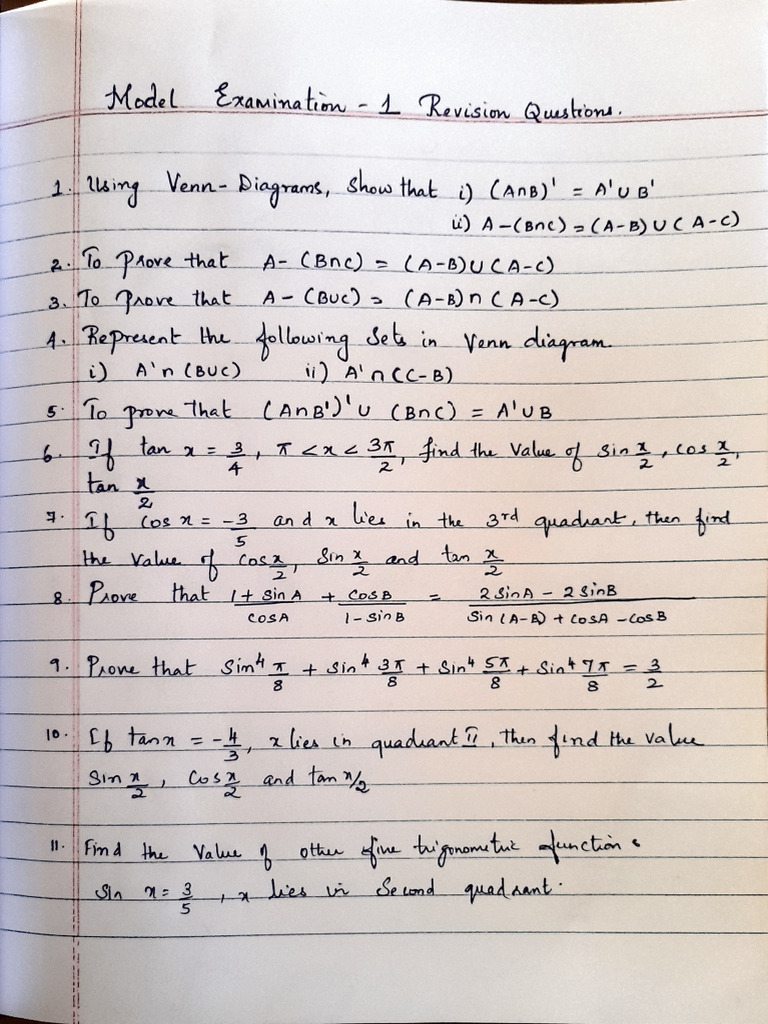 Model Examination - 1 Revision Questions.
1. Using Venn-Diagrams, show that i) (A∩B)' = A'∪B'
ii) A-(B∩C) = (A-B)∪(A-C)
2. To Prove that A-(B∩C) = (A-B)∪(A-C)
3. To Prove that A-(B∪C) = (A-B)∩(A-C)
4. Represent the following Sets in Venn diagram.
i) A'∩(B∪C) ii) A'∩(C-B)
5. To prove that (A∩B')'∪(B∩C) = A'∪B
6. If tan x = 3/4, π<x<3π/2, find the Value of Sin x/2, cos x/2,
tan x/2
7. If cos x = -3/5 and x lies in the 3rd quadrant, then find
the value of cos x/2, Sin x/2 and tan x/2
8. Prove that 1+sinA/cosA + cosB/1-sinB = 2sinA-2sinB/Sin(A-B)+cosA-cosB
9. Prove that Sin⁴ π/8 + Sin⁴ 3π/8 + Sin⁴ 5π/8 + Sin⁴ 7π/8 = 3/2
10. If tanx = -4/3, x lies in quadrant II, then find the value
Sin x/2, Cos x/2 and tan x/2
11. Find the Value of other five trigonometric functions
Sin x = 3/5, x lies in Second quadrant.